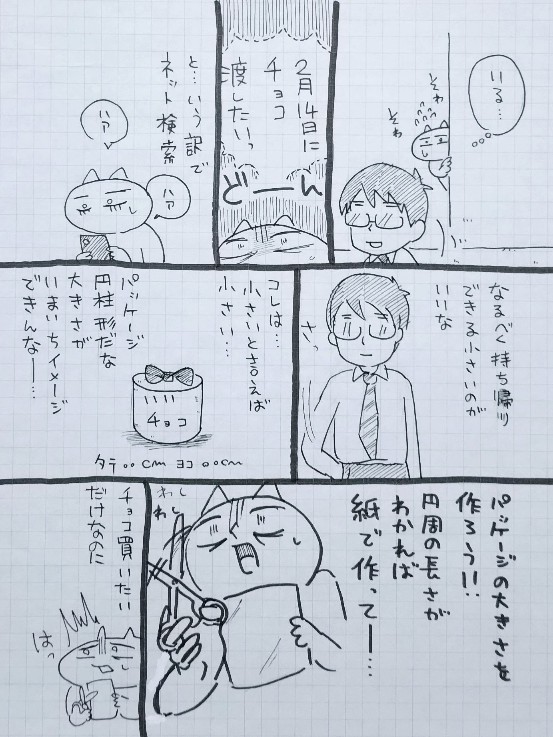 いる…
そわ
そわ
2月14日に
チョコ
渡したいっ
どーーん
と…いう訳で
ネット検索
ハア
ハア
なるべく持ち帰り
できる小さいのが
いいな
さっ
コレは…
小さいと言えば
小さい…
パッケージ
円柱形だな
大きさが
いまいちイメージ
できんなー…
チョコ
タテ○○cm ヨコ○○cm
パッケージの大きさを
作ろう!!
円周の長さが
わかれば
紙で作ってー…
わし
わし
チョコ買いたい
だけなのに
はっ